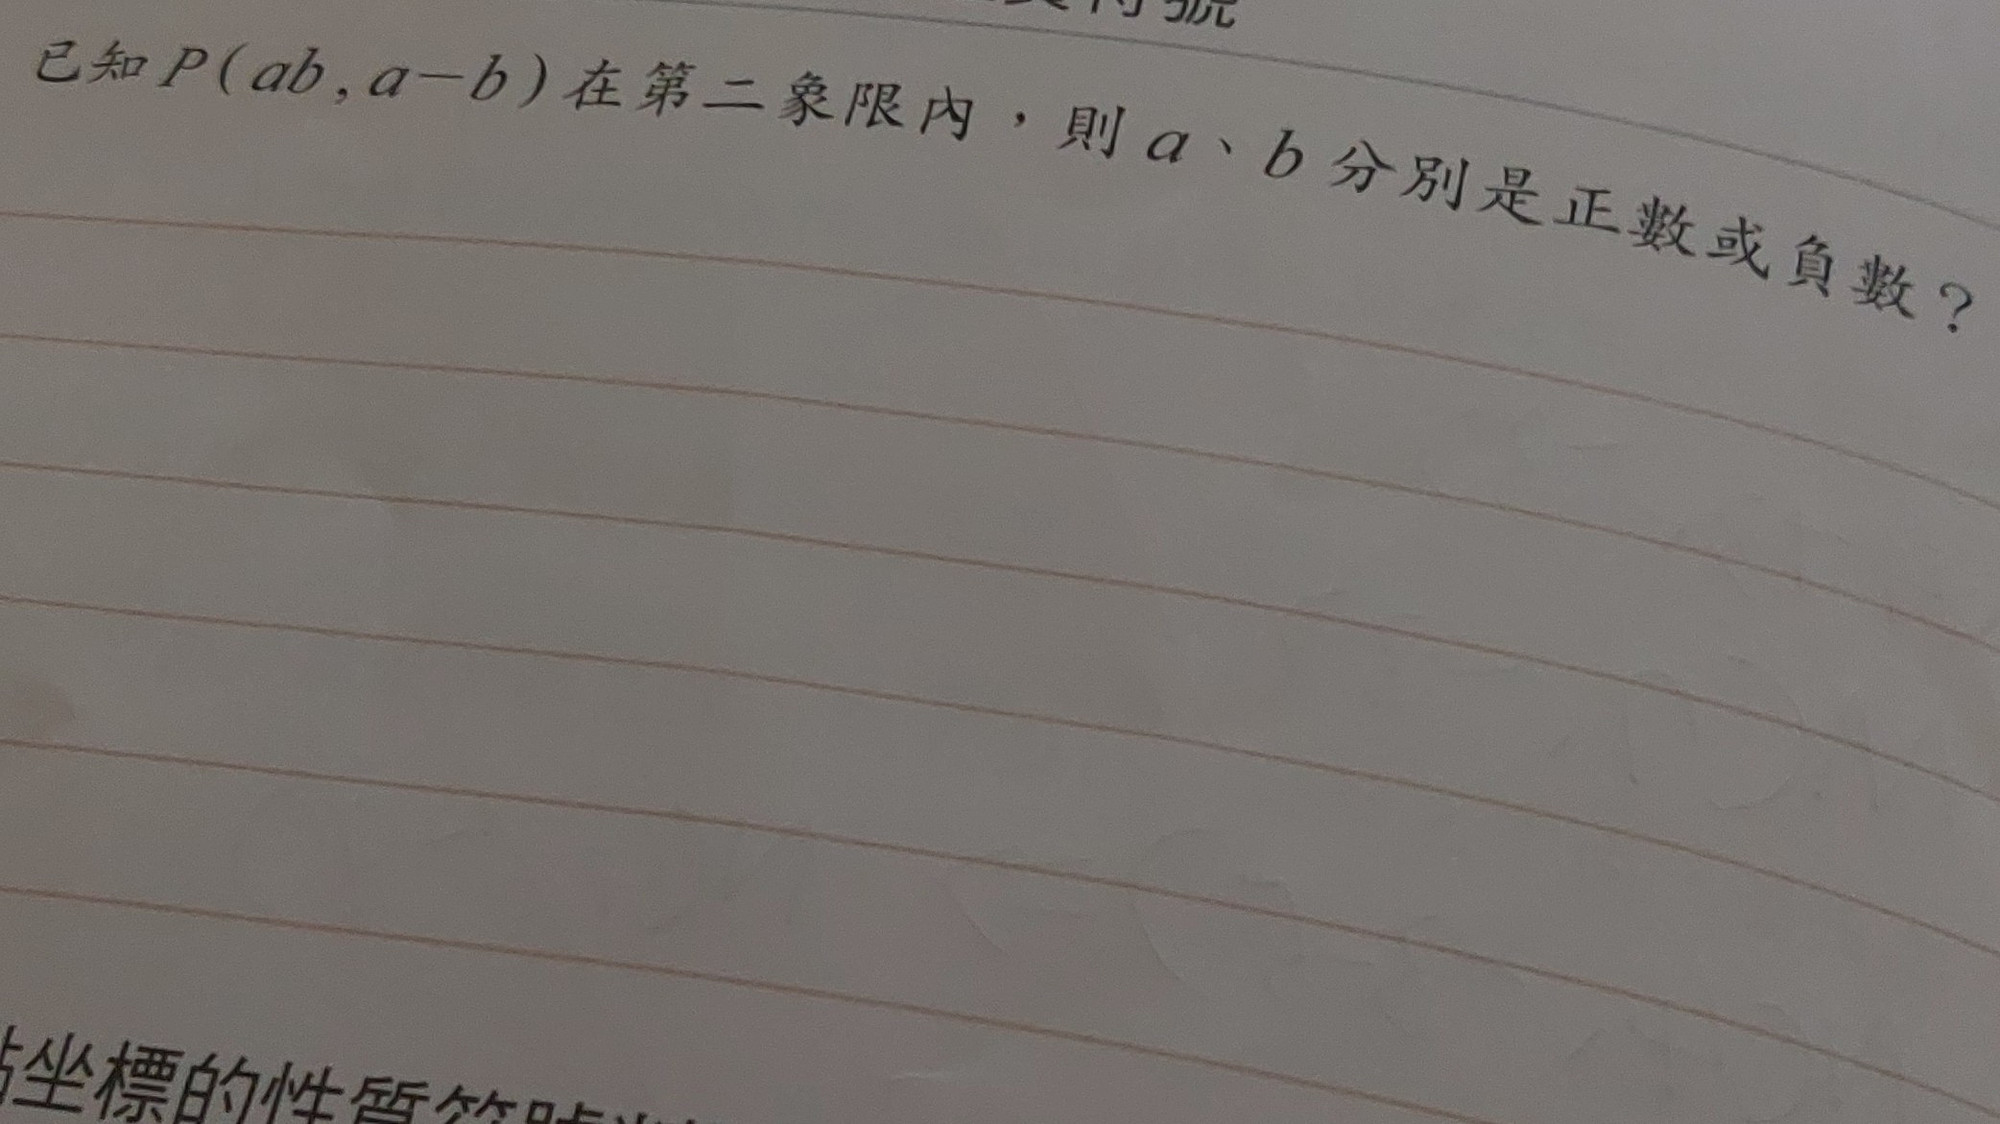 號
已知 P(ab, a－b) 在第二象限內，則 a、b 分別是正數或負數？
坐標的性質符號